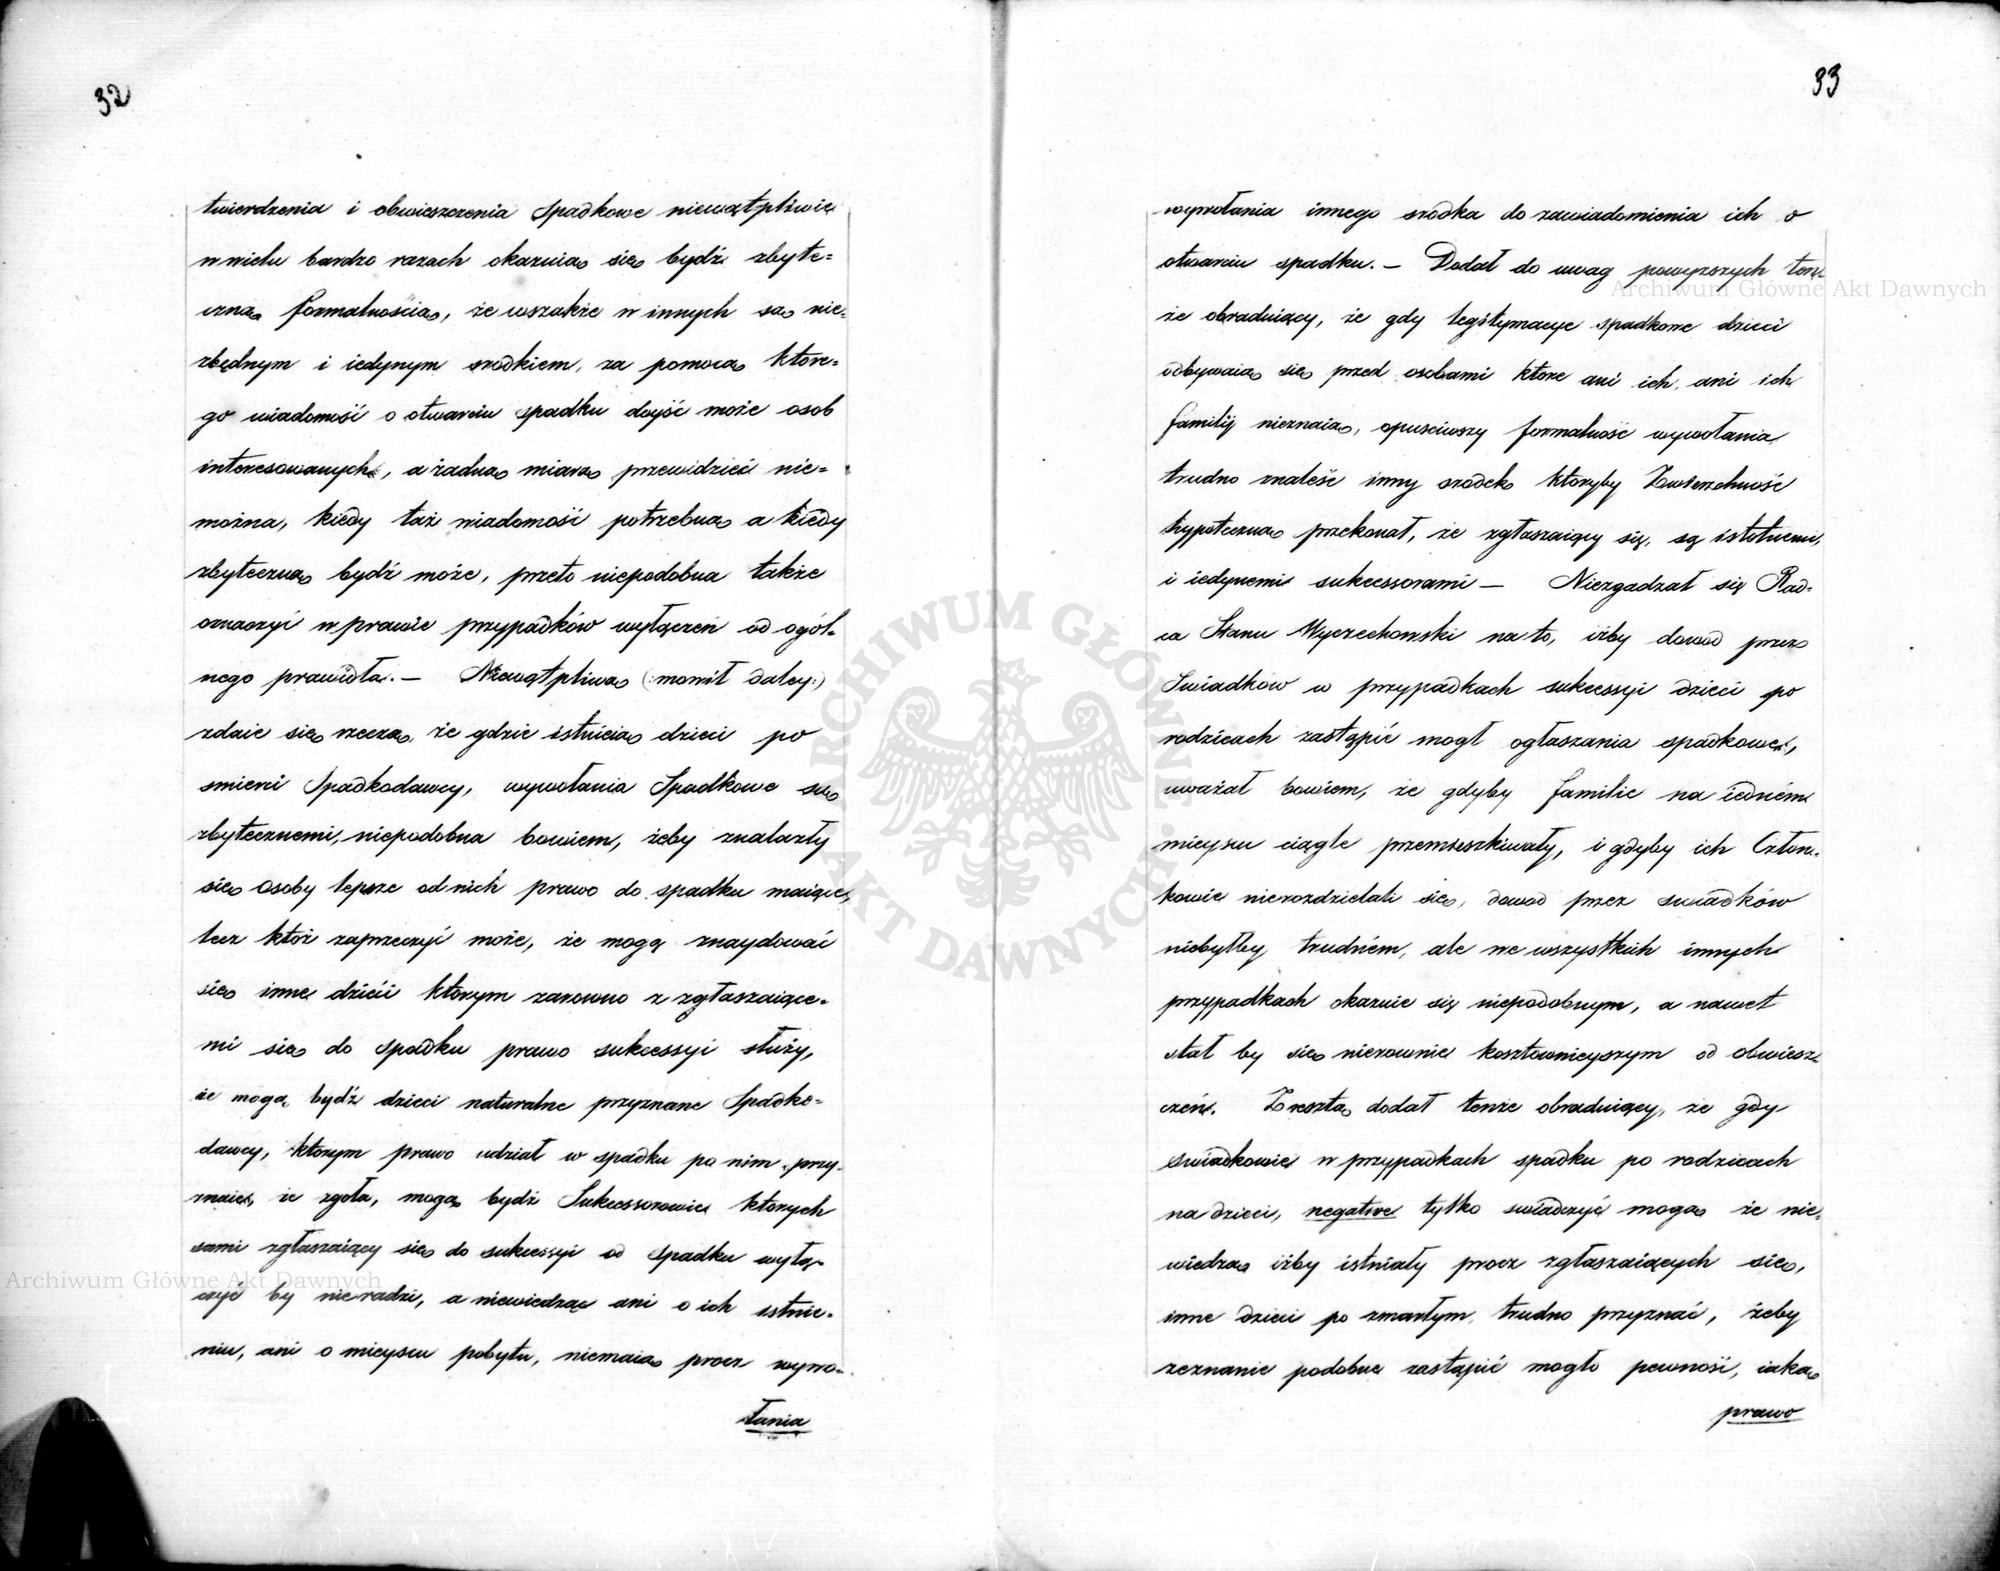 32
twierdzenia i obwieszczenia Spadkowe niewątpliwie
w wielu bardzo razach okazuią się bydź zbyte=
czną formalnością, że wszakże w innych są nie=
zbędnym i iedynym srodkiem, za pomocą które=
go wiadomość o otwarciu spadku doyść może osob
interesowanych, a żadną miarą przewidzieć nie=
można, kiedy taż wiadomość potrzebną a kiedy
zbyteczną bydź może, przeto niepodobna także
oznaczyć w prawie przypadków wyłączeń od ogól=
nego prawidła. — Niewątpliwą (: mówił daley :)
zdaie się rzeczą, że gdzie istnieią dzieci po
smierci Spadkodawcy, wywołania Spadkowe są
zbytecznemi, niepodobna bowiem, żeby znalazły
się osoby lepsze od nich prawo do spadku maiące,
lecz któż zaprzeczyć może, że mogą znaydować
się inne dzieci którym zarowno z zgłaszaiące=
mi się do spadku prawo sukcessyi służy,
że mogą bydź dzieci naturalne przyznane Spadko=
dawcy, którym prawo udział w spadku po nim przy=
znaie, że zgoła, mogą bydź Sukcessorowie których
sami zgłaszaiący się do sukcessyi od spadku wyłą=
czyć by nie radzi, a niewiedząc ani o ich istnie=
niu, ani o mieyscu pobytu, niemaią procz wywo=
łania
33
wywołania innego srodka do zawiadomienia ich o
otwarciu spadku. — Dodał do uwag powyższych ten
że obraduiący, że gdy legitymacye spadkowe dzieci
odbywaią się przed osobami które ani ich, ani ich
familij nieznaią, opusciwszy formalność wywołania
trudno znaleść inny srodek któryby Zwierzchność
hypoteczną przekonał, że zgłaszaiący się, są istotnemi,
i iedynemi sukcessorami — Niezgadzał się Rad=
ca Stanu Wyczechowski na to, iżby dowod przez
Swiadków w przypadkach sukcessyi dzieci po
rodzicach zastąpić mogł ogłaszania spadkowe,
uważał bowiem, że gdyby familie na iedném
mieyscu ciągle przemieszkiwały, i gdyby ich Człon=
kowie nierozdzielali się, dowod przez swiadków
niebyłby trudném, ale we wszystkich innych
przypadkach okazuie się niepodobnym, a nawet
stał by się nierownie kosztownieyszym od obwiesz
czeń. Zresztą dodał tenże obraduiący, że gdy
swiadkowie w przypadkach spadku po rodzicach
na dzieci, negative tylko swiadczyć mogą że nie=
wiedzą iżby istniały procz zgłaszaiących się,
inne dzieci po zmarłym, trudno przyznać, żeby
zeznanie podobne zastąpić mogło pewność, iaką
prawo
Archiwum Główne Akt Dawnych
Archiwum Główne Akt Dawnych
ARCHIWUM GŁÓWNE AKT DAWNYCH